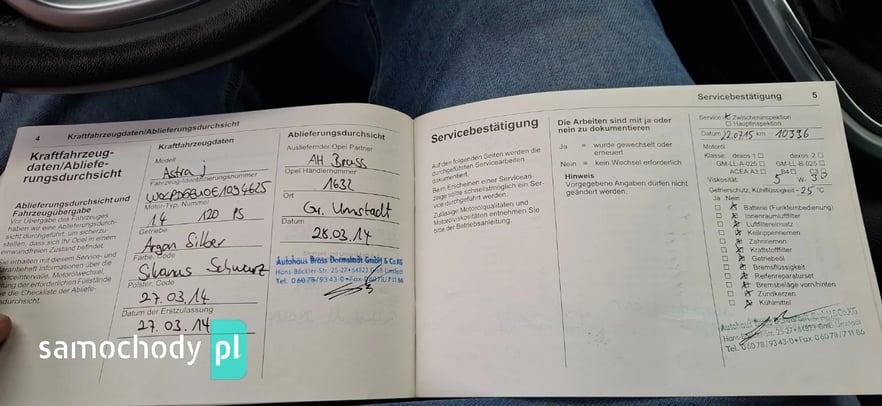 4 Kraftfahrzeugdaten/Ablieferungsdurchsicht
Kraftfahrzeug-
daten/Abliefe-
rungsdurchsicht
Ablieferungsdurchsicht und
Fahrzeugübergabe
Vor Übergabe des Fahrzeuges
haben wir eine Ablieferungsdurch-
sicht durchgeführt, um sicherzu-
stellen, dass sich Ihr Opel in einem
einwandfreien Zustand befindet.
Sie erhalten mit diesem Service- und
Garantieheft Informationen über die
Serviceintervalle, Motorölwechsel,
die Checkliste der Abliefe-
Kraftfahrzeugdaten
Modell
Astra j
Fahrzeug-Identifizierungsnummer
Motor-Typ, Nummer
14 120 PS
Getriebe
Argon Silber
Farbe, Code
Schwarz
Polster, Code
27.03.14
Datum der Erstzulassung
27.03.14
Ablieferungsdurchsicht
Ausliefernder Opel Partner
AH Brass
Opel Händlernummer
1632
Ort
Gr. Umstadt
Datum
28.03.14
Autohaus Brass Darmstadt GmbH & Co.KG
Hans-Böckler-Str. 25-27 • 64823 Groß-Umstadt
Tel. 0 60 78/93 43-0 • Fax 0 60 78/7 11 86
Servicebestätigung 5
Servicebestätigung
Auf den folgenden Seiten werden die
durchgeführten Servicearbeiten
dokumentiert.
Beim Erscheinen einer Servicean-
zeige sollte schnellstmöglich ein Ser-
vice durchgeführt werden.
Zulässige Motorölqualitäten und
Motorölviskositäten entnehmen Sie
bitte der Betriebsanleitung.
Die Arbeiten sind mit ja oder
nein zu dokumentieren
Ja = wurde gewechselt oder
erneuert
Nein = kein Wechsel erforderlich
Hinweis
Vorgegebene Angaben dürfen nicht
geändert werden.
Service: Zwischeninspektion
Hauptinspektion
Datum 22.07.15 km 10336
Motoröl
Klasse: dexos 1 dexos 2
GM-LL-A-025 GM-LL-B-025
ACEA A3 B4 C3
Viskosität: 5 W- 30
Gefrierschutz, Kühlflüssigkeit -25 °C
Ja Nein
Batterie (Funkfernbedienung)
Innenraumluftfilter
Luftfiltereinsatz
Keilrippenriemen
Zahnriemen
Kraftstofffilter
Getriebeöl
Bremsflüssigkeit
Reifenreparaturset
Bremsbeläge vorn/hinten
Zündkerzen
Kühlmittel
Autohaus
Hans- Str. 25-27 • 64823 Groß-Umstadt
Tel. 0 60 78/9343-0 • Fax 0 60 78/7 11 86
samochody pl